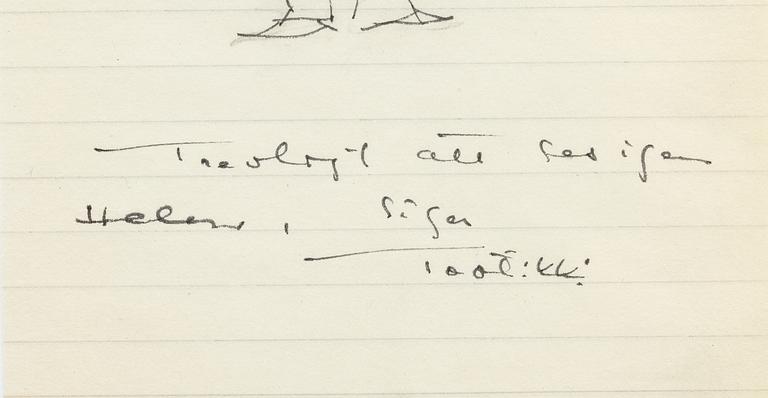 Trevligt att ses igen
Helen, säger
Tootikki